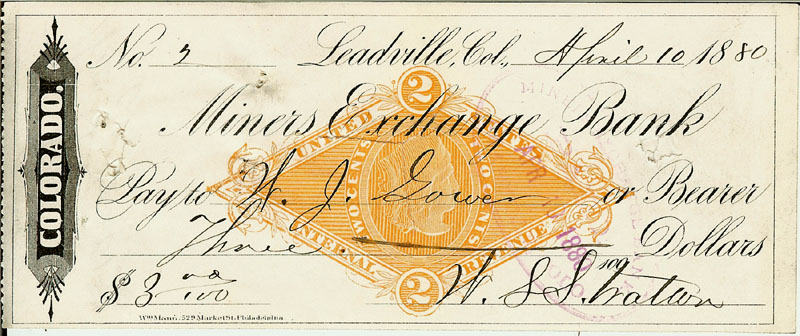 COLORADO.
No. 3 Leadville, Col., April 10 1880
Miners Exchange Bank
2
UNITED STATES
TWO CENTS TWO CENTS
Pay to W. J. Gower or Bearer
Three 100 Dollars
INTERNAL REVENUE
1880
$ 3 00/100 W. S. Stratton
2
Wm Mann, 529 Market St. Philadelphia